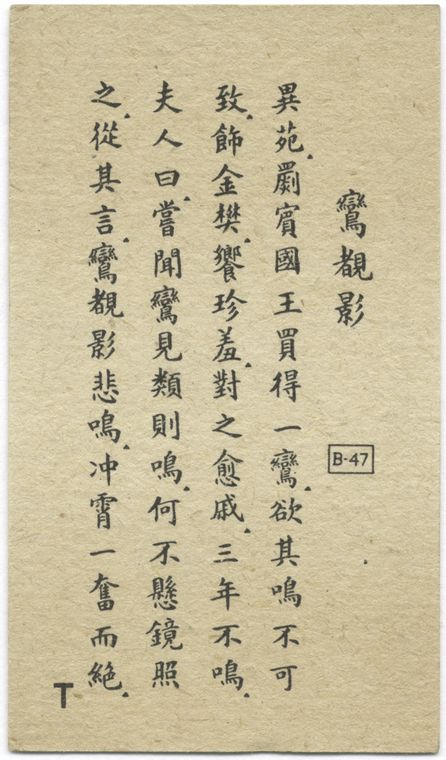 鸞覩影
異苑.罽賓國王買得一鸞.欲其鳴不可
致.飾金樊.饗珍羞.對之愈戚.三年不鳴.
夫人曰.嘗聞鸞見類則鳴.何不懸鏡照
之.從其言.鸞覩影悲鳴.冲霄一奮而絶.
B-47
T